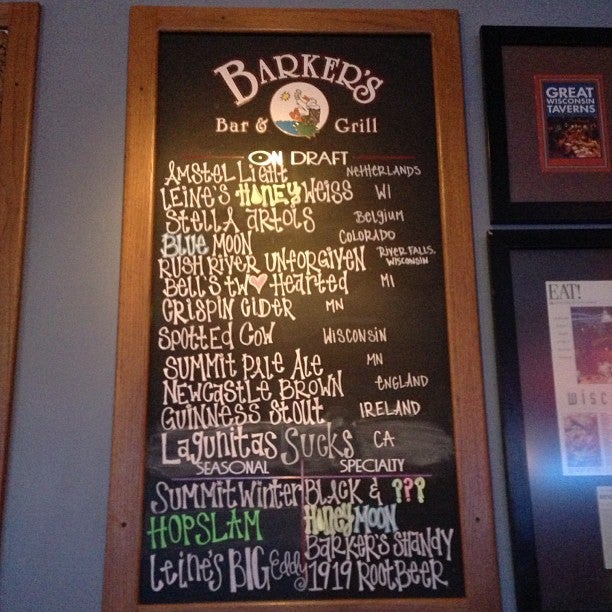 BARKER'S
Bar & Grill
ON DRAFT
Amstel Light Netherlands
Leine's Honey Weiss WI
Stella Artois Belgium
Blue Moon Colorado
Rush River Unforgiven River Falls, Wisconsin
Bell's Two Hearted MI
Crispin Cider MN
Spotted Cow Wisconsin
Summit Pale Ale MN
Newcastle Brown England
Guinness Stout Ireland
Lagunitas Sucks CA
SEASONAL SPECIALTY
Summit Winter Black & ???
HOPSLAM Honey Moon
Leine's BIG Eddy Barker's Shandy
1919 Root Beer
GREAT
WISCONSIN
TAVERNS
EAT!